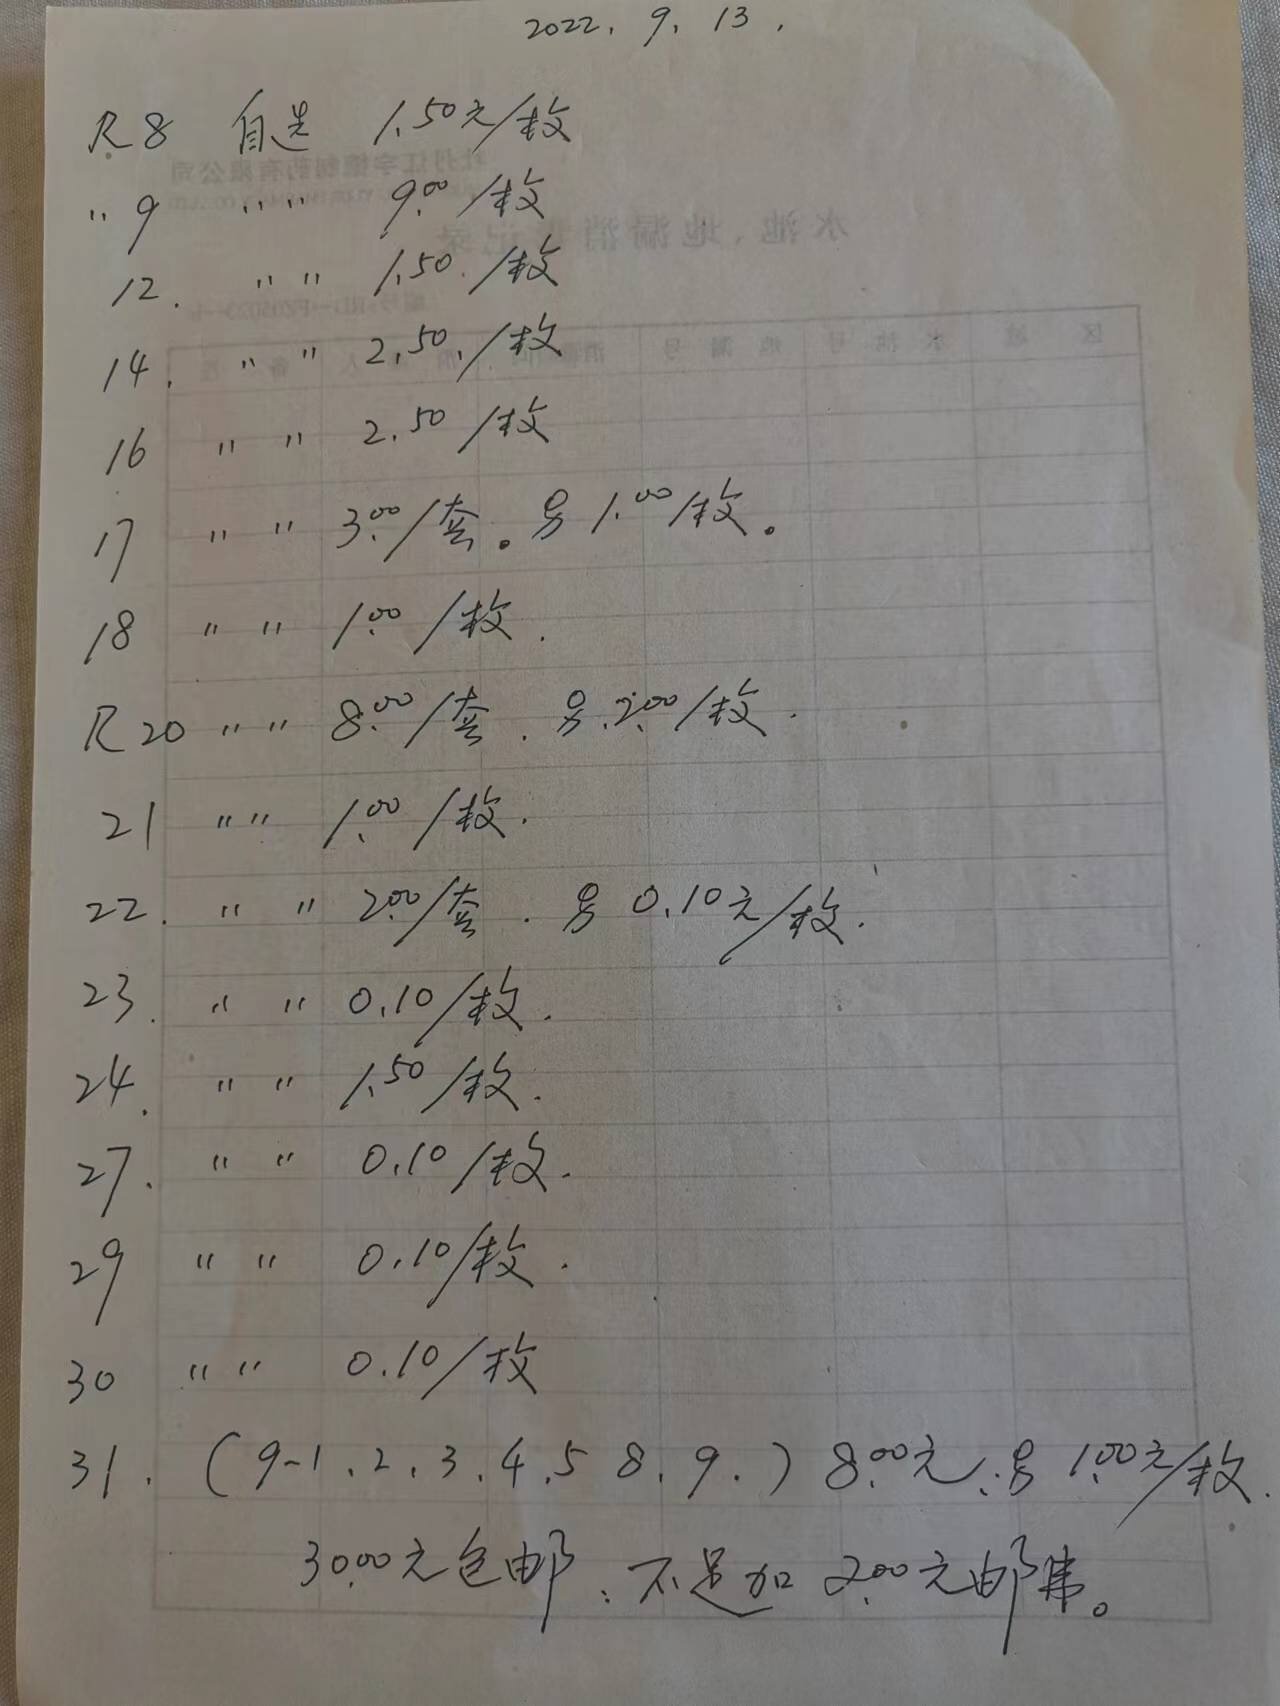 2022.9.13.
R8 自选 1.50元/枚
〃9 〃〃 9.00/枚
12. 〃〃 1.50/枚
14. 〃〃 2.50/枚
16 〃〃 2.50/枚
17 〃〃 3.00/套。另1.00/枚。
18 〃〃 1.00/枚.
R20 〃〃 8.00/套.另.2.00/枚.
21 〃〃 1.00/枚.
22. 〃〃 2.00/套.另0.10元/枚.
23. 〃〃 0.10/枚.
24. 〃〃 1.50/枚.
27. 〃〃 0.10/枚.
29 〃〃 0.10/枚.
30 〃〃 0.10/枚
31. (9-1.2.3.4.5 8.9.) 8.00元.另1.00元/枚.
30.00元包邮.不足加2.00元邮费。
水池、地漏消毒记录